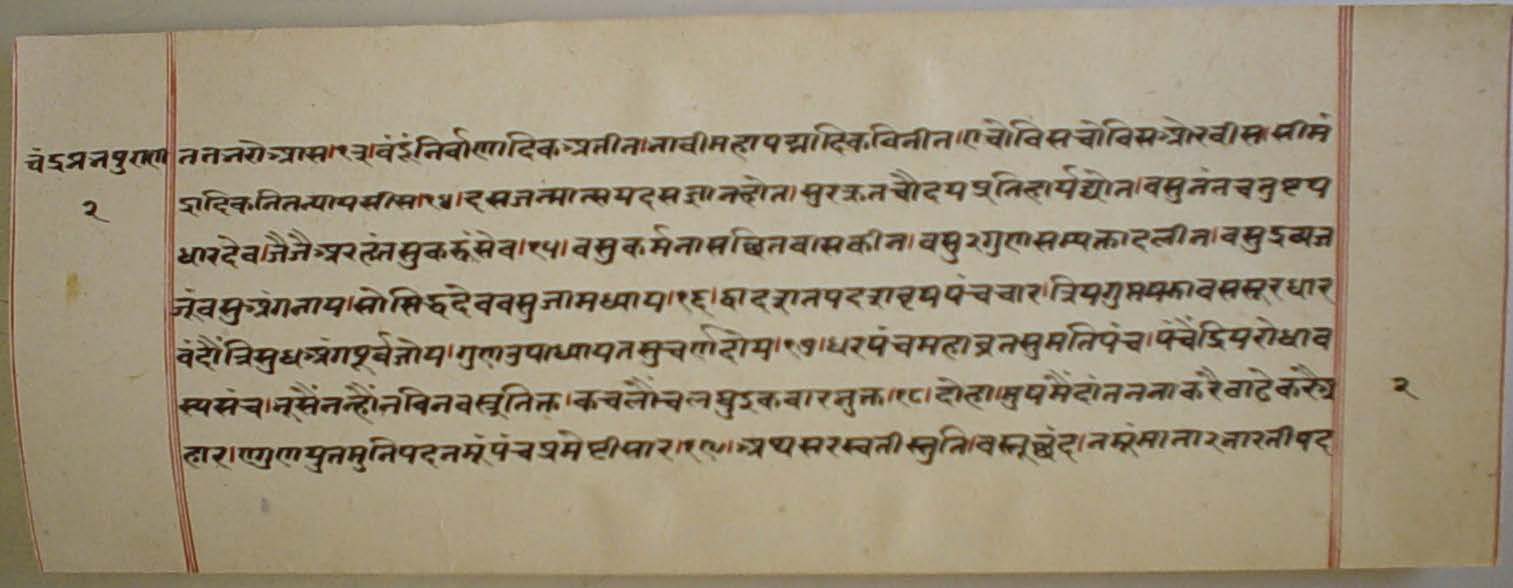 चंद्रप्रनपुराण
२
तननरोग्रास।१३।वंदूंनिर्वाणादिकअतीत।नावीमहापद्मादिकविनीत।एचोविसचोविसओरवीस।सीमं
द्रादिकनितन्यायसीस।१४।दसजन्मात्सयदसज्ञानहोत।सुरक्रतचौदयप्रतिहार्यद्योत।वसुनंतचतुष्टय
धारदेव।जैजैअरहंतसुकरुंसेव।१५।वसुकर्मनासछितवासकीन।वसुरगुणसम्यक्तादलीन।वसुद्रव्यज
जूंवसुअंगनाय।सोसिद्धदेववसुजामध्याय।१६।द्वादशतपदशवृषपंचचार।त्रियगुप्तषकावससूरधार
वंदौंत्रिसुधअंगपूर्वजोय।गुणउपाध्यायतसुचर्णदोय।१७।धरपंचमहाव्रतसुमतिपंच।पंचेंद्रियरोधाव
स्यसंच।नूसैंनन्हौंनविनवस्त्रतिक्त।कचलौंचलघुइकवारभुक्त।१८।दोहा।मुषमैंदांतननाकरैठाढेकरैअ
हार।एगुणयुतमुनिपदनमूंपंचप्रमेष्टीसार।१९।अथसरस्वतीस्तुति।वस्तूछंद।नमूंमातारनारतीपद
२